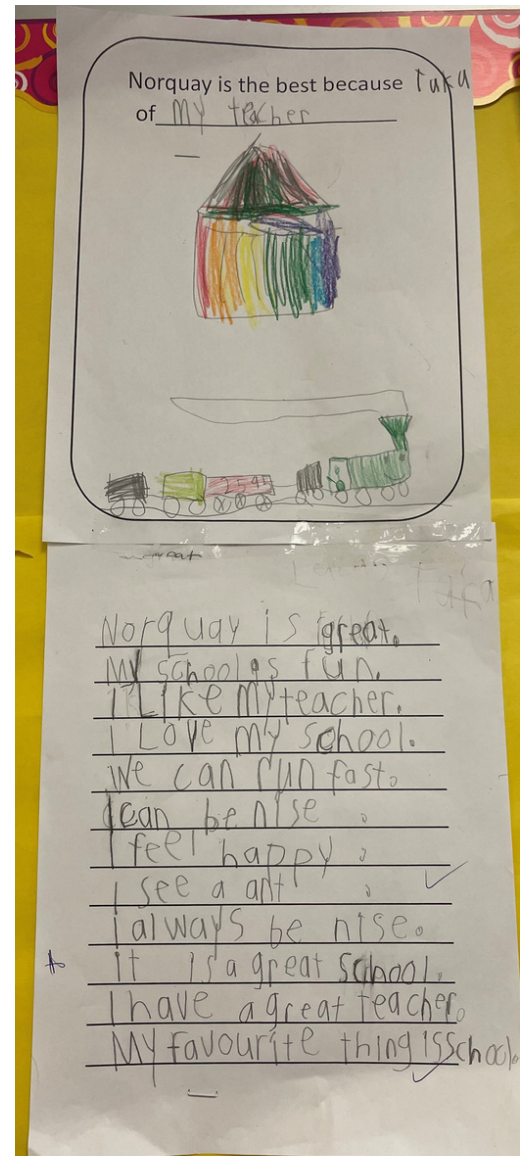 Norquay is the best because Taka
of my teacher
Taka
Norquay is great.
My school is fun.
I Like my teacher.
I Love my school.
We can run fast.
I can be nise.
I feel happy.
I see a ant.
i always be nise.
it is a great school.
I have a great teacher.
My favourite thing is school.